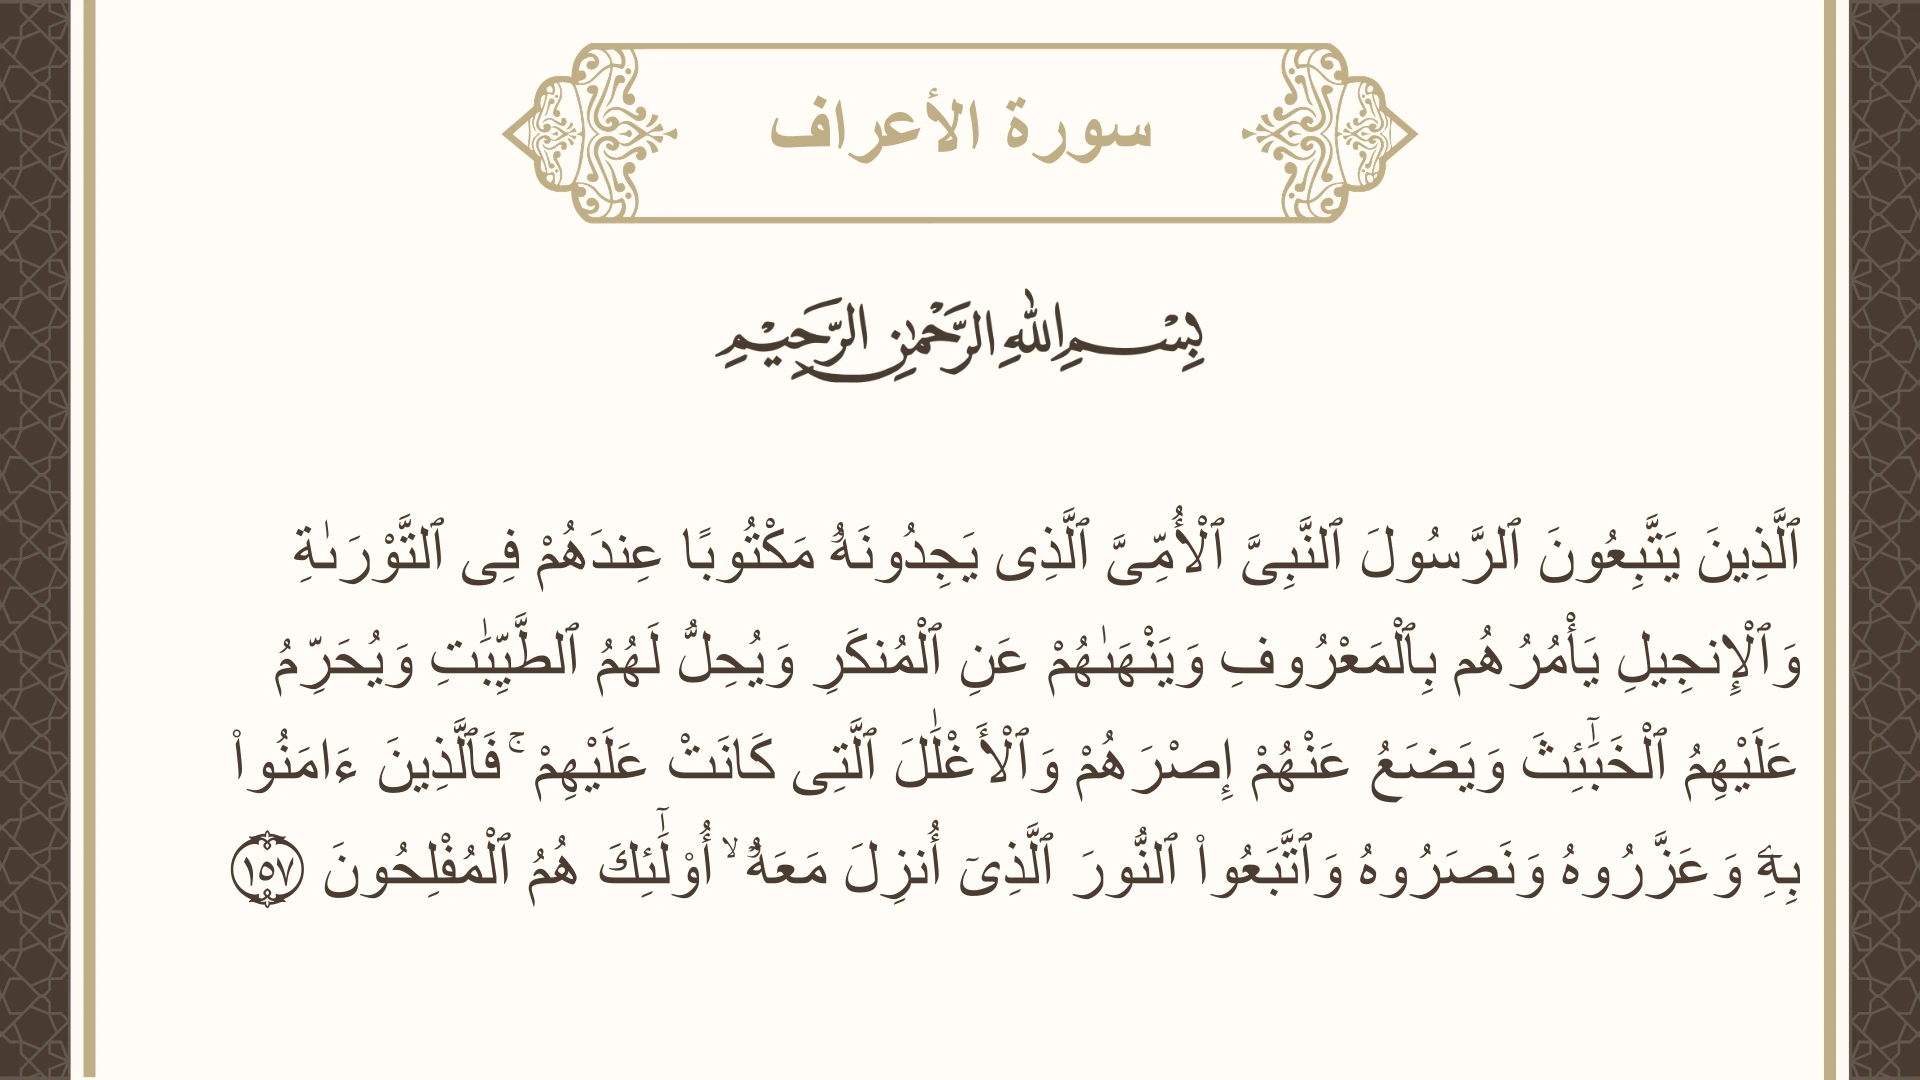 سورة الأعراف
بِسْمِ اللهِ الرَّحْمٰنِ الرَّحِيْمِ
ٱلَّذِينَ يَتَّبِعُونَ ٱلرَّسُولَ ٱلنَّبِىَّ ٱلْأُمِّىَّ ٱلَّذِى يَجِدُونَهُۥ مَكْتُوبًا عِندَهُمْ فِى ٱلتَّوْرَىٰةِ
وَٱلْإِنجِيلِ يَأْمُرُهُم بِٱلْمَعْرُوفِ وَيَنْهَىٰهُمْ عَنِ ٱلْمُنكَرِ وَيُحِلُّ لَهُمُ ٱلطَّيِّبَٰتِ وَيُحَرِّمُ
عَلَيْهِمُ ٱلْخَبَٰٓئِثَ وَيَضَعُ عَنْهُمْ إِصْرَهُمْ وَٱلْأَغْلَٰلَ ٱلَّتِى كَانَتْ عَلَيْهِمْ ۚ فَٱلَّذِينَ ءَامَنُوا۟
بِهِۦ وَعَزَّرُوهُ وَنَصَرُوهُ وَٱتَّبَعُوا۟ ٱلنُّورَ ٱلَّذِىٓ أُنزِلَ مَعَهُۥٓ ۙ أُو۟لَٰٓئِكَ هُمُ ٱلْمُفْلِحُونَ ١٥٧